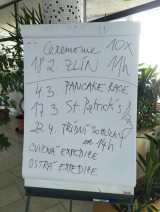 Ceremonie 10x
18.2. ZLÍN 11h
4.3. PANCAKE RACE
17.3 St Patrick's
22.4. TŘÍDNÍ
od 14h
CVIČNÁ EXPEDICE
OSTRÁ EXPEDICE